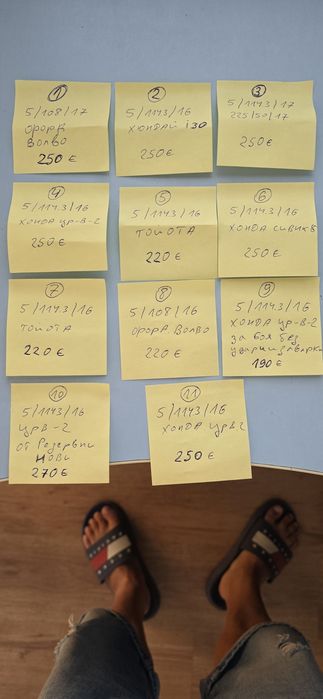 1
5/108/17
ФОРД
ВОЛВО
250 €
2
5/114.3/16
ХЮНДАЙ i30
250 €
3
5/114.3/17
225/50/17
250 €
4
5/114.3/16
ХОНДА ЦР-В-2
250 €
5
5/114.3/16
ТОЙОТА
220 €
6
5/114.3/16
ХОНДА СИВИК 8
250 €
7
5/114.3/16
ТОЙОТА
220 €
8
5/108/16
ФОРД ВОЛВО
220 €
9
5/114.3/16
ХОНДА ЦР-В-2
за боя без
удари, заварки
190 €
10
5/114.3/16
ЦРВ-2
от Резервни
НОВИ
270 €
11
5/114.3/16
ХОНДА ЦРВ2
250 €